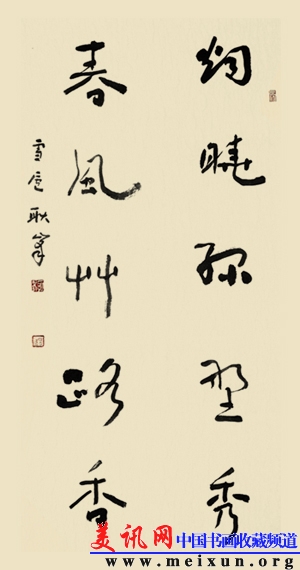 曉野秀
春風艸路香
雪耿峯
美讯网 中国书画收藏频道
www.meixun.org